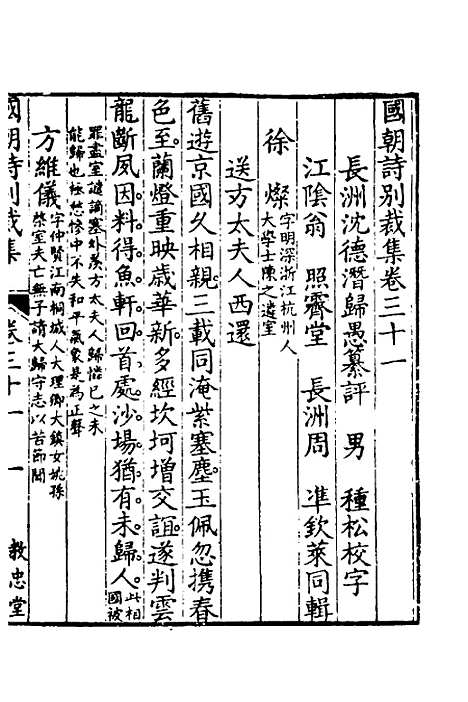 國朝詩別裁集卷三十一
長洲沈德潛歸愚纂評 男 種松校字
江陰翁 照霽堂 長洲周 準欽萊同輯
徐 燦 字明深浙江杭州人大學士陳之遴室
送方太夫人西還
舊遊京國久相親三載同淹紫塞塵玉佩忽携春
色至蘭燈重映歲華新多經坎坷增交誼遂判雲
龍斷夙因料得魚軒回首處沙場猶有未歸人此相國被
罪盡室譴謫塞外羨方太夫人歸慨已之未能歸也極愁慘中不失和平氣象是為正聲
方維儀 字仲賢江南桐城人大理卿大鎮女姚孫棨室夫亡無子請大歸守志以苦節聞
國朝詩別裁集 卷三十一 一 教忠堂